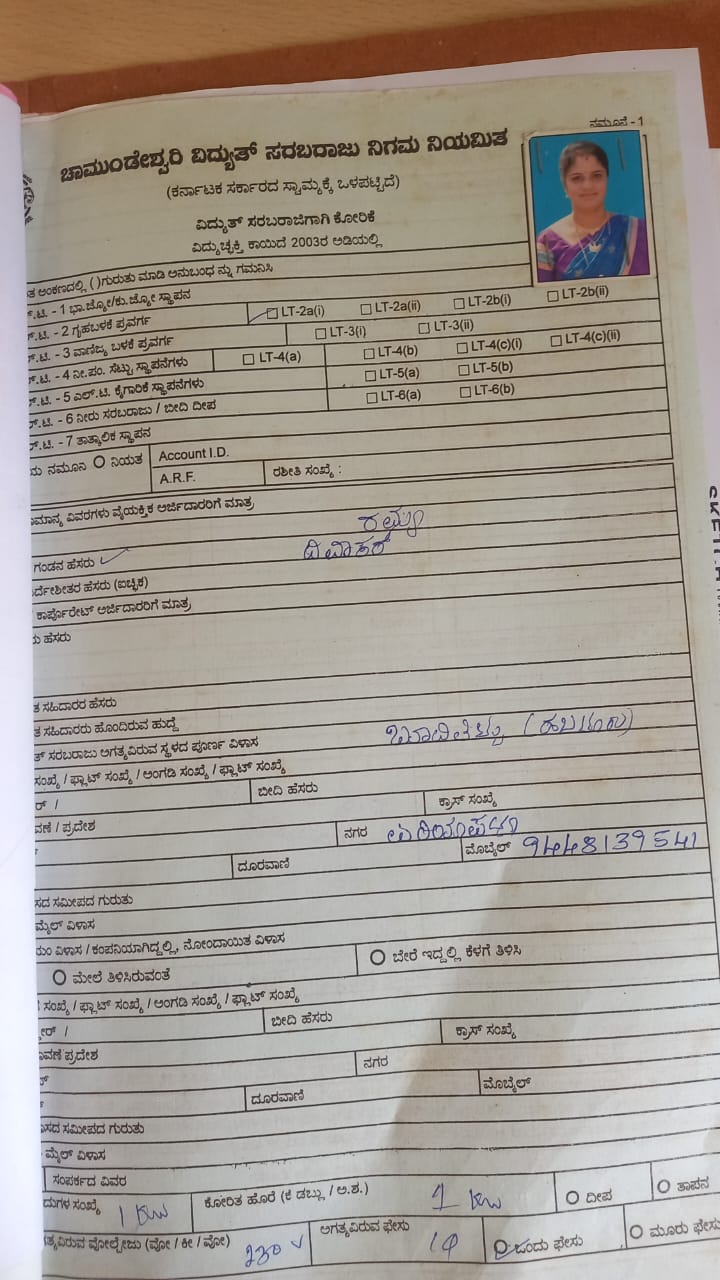 ನಮೂನೆ - 1
ಚಾಮುಂಡೇಶ್ವರಿ ವಿದ್ಯುತ್ ಸರಬರಾಜು ನಿಗಮ ನಿಯಮಿತ
(ಕರ್ನಾಟಕ ಸರ್ಕಾರದ ಸ್ವಾಮ್ಯಕ್ಕೆ ಒಳಪಟ್ಟಿದೆ)
ವಿದ್ಯುತ್ ಸರಬರಾಜಿಗಾಗಿ ಕೋರಿಕೆ
ವಿದ್ಯುಚ್ಛಕ್ತಿ ಕಾಯಿದೆ 2003ರ ಅಡಿಯಲ್ಲಿ
ತ ಅಂಕಣದಲ್ಲಿ ( )ಗುರುತು ಮಾಡಿ ಅನುಬಂಧ ನ್ನು ಗಮನಿಸಿ
.ಟಿ. - 1 ಭಾ.ಜ್ಯೋ/ಕು.ಜ್ಯೋ ಸ್ಥಾಪನ
.ಟಿ. - 2 ಗೃಹಬಳಕೆ ಪ್ರವರ್ಗ LT-2a(i) LT-2a(ii) LT-2b(i) LT-2b(ii)
.ಟಿ. - 3 ವಾಣಿಜ್ಯ ಬಳಕೆ ಪ್ರವರ್ಗ LT-3(i) LT-3(ii)
.ಟಿ. - 4 ನೀ.ಪಂ. ಸೆಟ್ಟು ಸ್ಥಾಪನೆಗಳು LT-4(a) LT-4(b) LT-4(c)(i) LT-4(c)(ii)
.ಟಿ. - 5 ಎಲ್.ಟಿ. ಕೈಗಾರಿಕೆ ಸ್ಥಾಪನೆಗಳು LT-5(a) LT-5(b)
.ಟಿ. - 6 ನೀರು ಸರಬರಾಜು / ಬೀದಿ ದೀಪ LT-6(a) LT-6(b)
.ಟಿ. - 7 ತಾತ್ಕಾಲಿಕ ಸ್ಥಾಪನ
ಯ ನಮೂನಿ ನಿಯತ Account I.D.
A.R.F. ರಶೀತಿ ಸಂಖ್ಯೆ :
ಾಮಾನ್ಯ ವಿವರಗಳು ವೈಯಕ್ತಿಕ ಅರ್ಜಿದಾರರಿಗೆ ಮಾತ್ರ
ರಮ್ಯ
ಗಂಡನ ಹೆಸರು ದಿವಾಕರ್
ರ್ದೇಶಿತರ ಹೆಸರು (ಐಚ್ಛಿಕ)
ಕಾರ್ಪೊರೇಟ್ ಅರ್ಜಿದಾರರಿಗೆ ಮಾತ್ರ
ಯ ಹೆಸರು
ತ ಸಹಿದಾರರ ಹೆಸರು
ತ ಸಹಿದಾರರು ಹೊಂದಿರುವ ಹುದ್ದೆ
ತ್ ಸರಬರಾಜು ಅಗತ್ಯವಿರುವ ಸ್ಥಳದ ಪೂರ್ಣ ವಿಳಾಸ
ಸಂಖ್ಯೆ / ಫ್ಲಾಟ್ ಸಂಖ್ಯೆ / ಅಂಗಡಿ ಸಂಖ್ಯೆ / ಫ್ಲಾಟ್ ಸಂಖ್ಯೆ
ರ್ / ಬೀದಿ ಹೆಸರು
ವಣೆ / ಪ್ರದೇಶ ಕ್ರಾಸ್ ಸಂಖ್ಯೆ
ನಗರ
ದೂರವಾಣಿ ಮೊಬೈಲ್ 9448139541
ಸದ ಸಮೀಪದ ಗುರುತು
ಮೈಲ್ ವಿಳಾಸ
ಯಂ ವಿಳಾಸ / ಕಂಪನಿಯಾಗಿದ್ದಲ್ಲಿ, ನೋಂದಾಯಿತ ವಿಳಾಸ
ಮೇಲೆ ತಿಳಿಸಿರುವಂತೆ ಬೇರೆ ಇದ್ದಲ್ಲಿ ಕೆಳಗೆ ತಿಳಿಸಿ
ಸಂಖ್ಯೆ / ಫ್ಲಾಟ್ ಸಂಖ್ಯೆ / ಅಂಗಡಿ ಸಂಖ್ಯೆ / ಫ್ಲಾಟ್ ಸಂಖ್ಯೆ
ರ್ / ಬೀದಿ ಹೆಸರು
ವಣೆ ಪ್ರದೇಶ ಕ್ರಾಸ್ ಸಂಖ್ಯೆ
ನಗರ
ದೂರವಾಣಿ ಮೊಬೈಲ್
ಸದ ಸಮೀಪದ ಗುರುತು
ಮೈಲ್ ವಿಳಾಸ
ಸಂಪರ್ಕದ ವಿವರ
ದುಗಳ ಸಂಖ್ಯೆ 1 ಕೋರಿತ ಹೊರೆ (ಕೆ ಡಬ್ಲು / ಅ.ಶ.) 1 ದೀಪ ತಾಪನ
ಗತ್ಯವಿರುವ ವೋಲ್ಟೇಜು (ವೋ / ಕೀ / ವೋ) 230 v ಅಗತ್ಯವಿರುವ ಫೇಸು 1φ ಒಂದು ಫೇಸು ಮೂರು ಫೇಸು